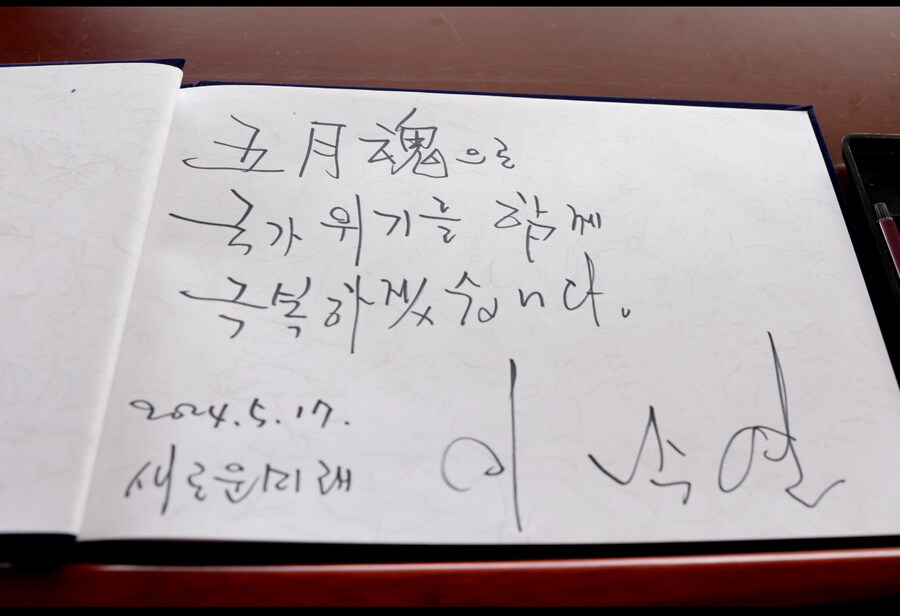 五月魂으로
국가 위기를 함께
극복하겠습니다.
2024.5.17.
새로운미래
이석현